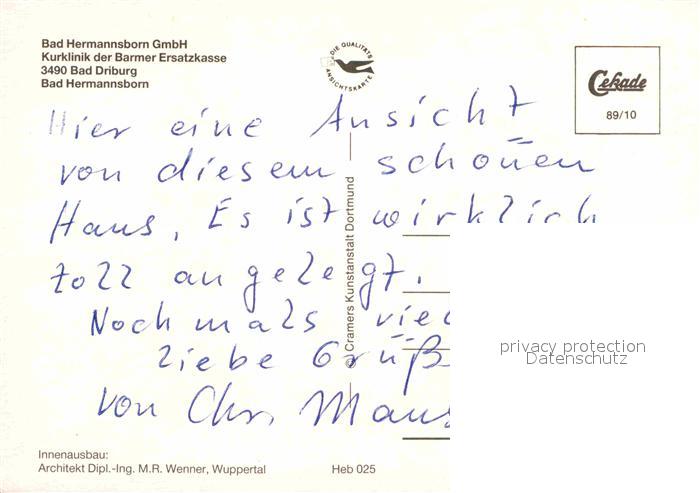 Bad Hermannsborn GmbH
Kurklinik der Barmer Ersatzkasse
3490 Bad Driburg
Bad Hermannsborn
DIE QUALITÄTS
ANSICHTSKARTE
Cekade
89/10
Hier eine Ansicht
von diesem schönen
Haus, Es ist wirklich
toll angelegt.
Nochmals viel
liebe Grüß
von Chr. Maus
© Cramers Kunstanstalt Dortmund
privacy protection
Datenschutz
Innenausbau:
Architekt Dipl.-Ing. M.R. Wenner, Wuppertal
Heb 025